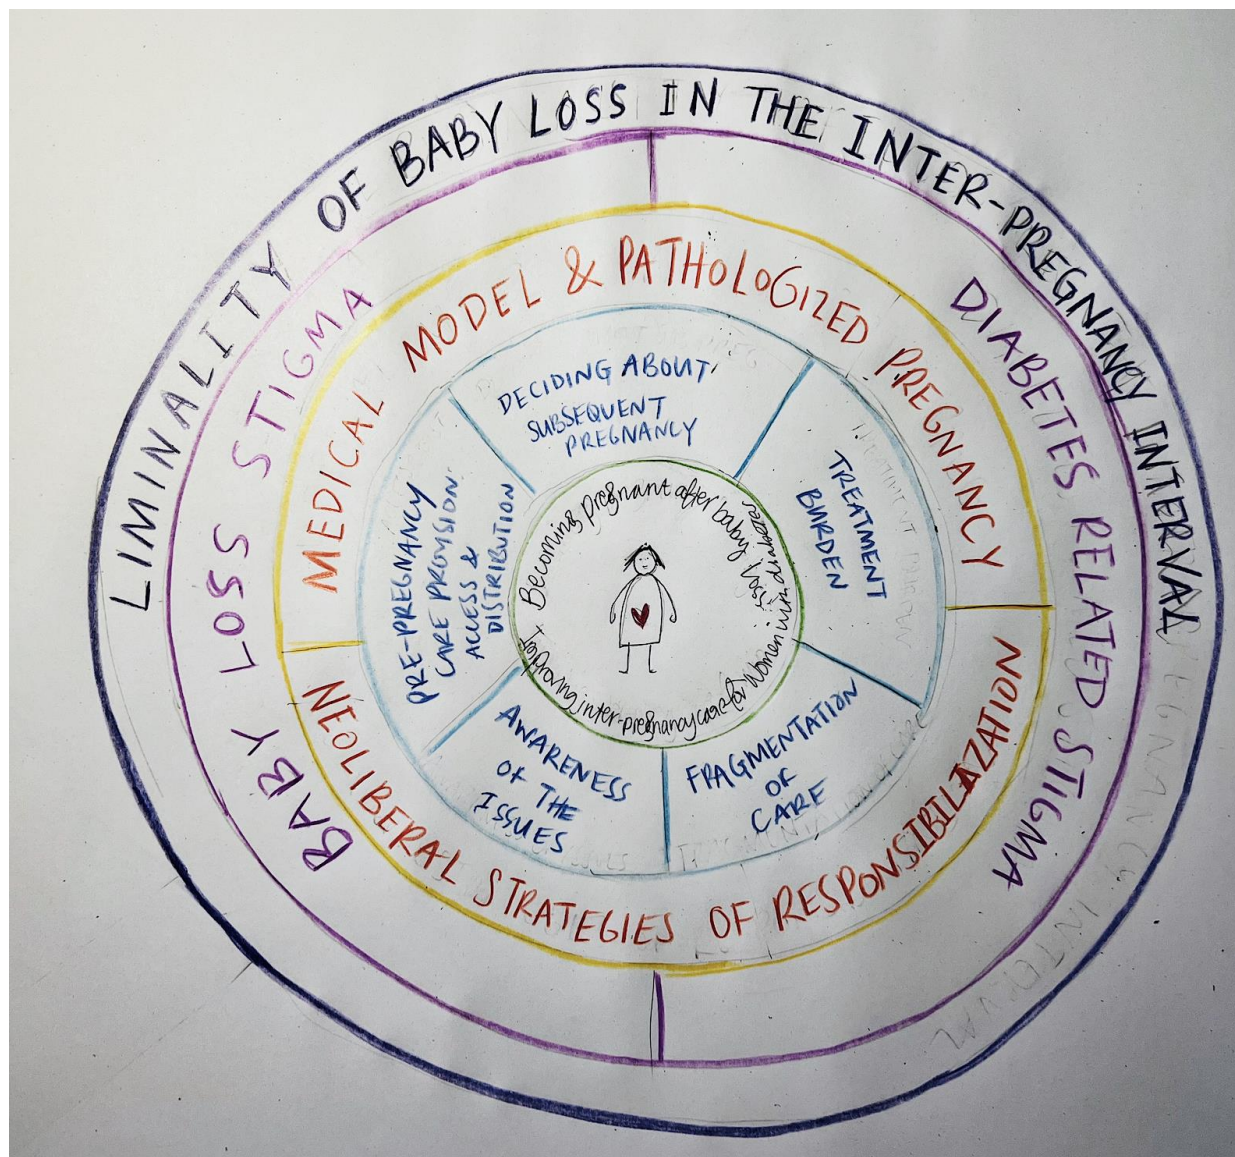 LIMINALITY OF BABY LOSS IN THE INTER-PREGNANCY INTERVAL
BABY LOSS STIGMA
DIABETES RELATED STIGMA
MEDICAL MODEL & PATHOLOGIZED PREGNANCY
NEOLIBERAL STRATEGIES OF RESPONSIBILIZATION
DECIDING ABOUT
SUBSEQUENT
PREGNANCY
TREATMENT
BURDEN
FRAGMENTATION
OF
CARE
AWARENESS
OF THE
ISSUES
PRE-PREGNANCY
CARE PROVISION
ACCESS &
DISTRIBUTION
Becoming pregnant after baby loss:
Improving inter-pregnancy care for women with diabetes
PREGNANCY INTERVAL